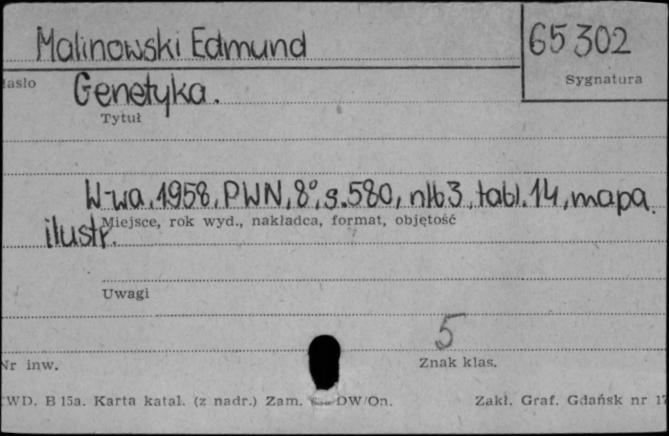 Malinowski Edmund
65302
Sygnatura
Hasło
Genetyka.
Tytuł
W-wa, 1958, PWN, 8°, s. 580, nlb 3, tabl. 14, mapa,
Miejsce, rok wyd., nakładca, format, objętość
ilustr.
Uwagi
5
Nr inw.
Znak klas.
CWD. B 15a. Karta katal. (z nadr.) Zam. DW/On.
Zakł. Graf. Gdańsk nr 17